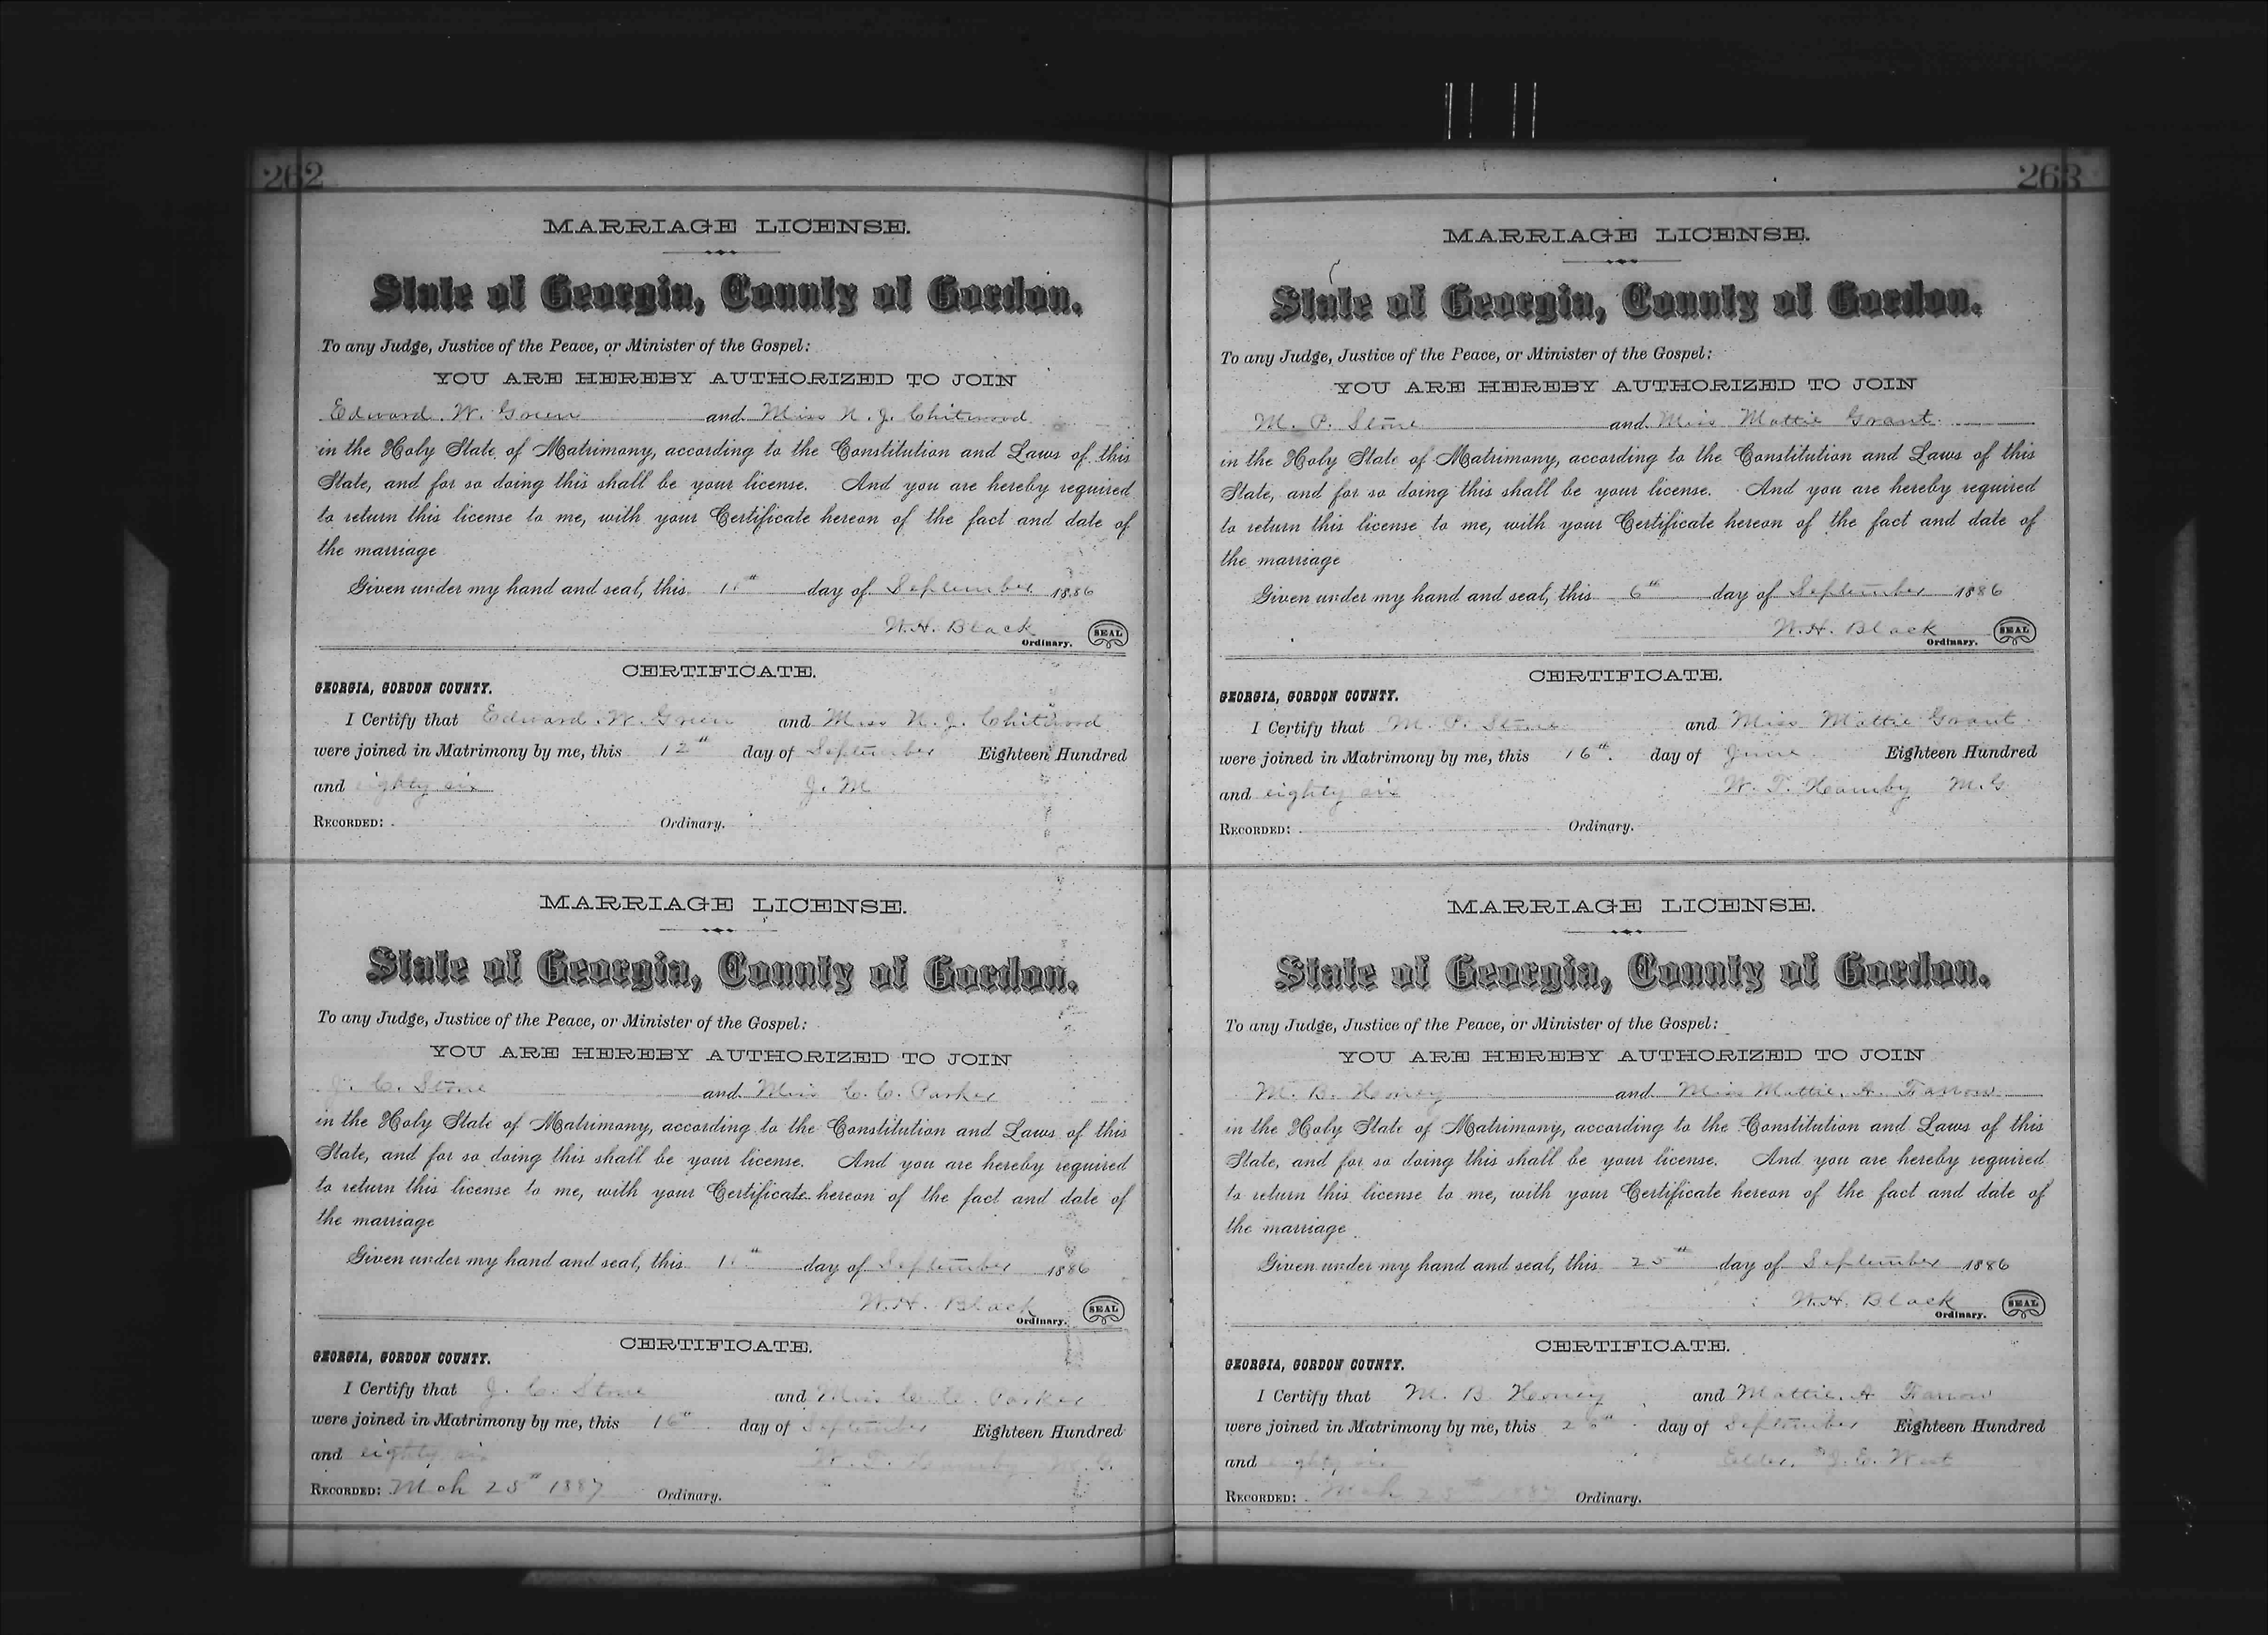 262
MARRIAGE LICENSE.
State of Georgia, County of Gordon.
To any Judge, Justice of the Peace, or Minister of the Gospel:
YOU ARE HEREBY AUTHORIZED TO JOIN
Edward W. Green and Miss N. J. Chitwood
in the Holy State of Matrimony, according to the Constitution and Laws of this
State, and for so doing this shall be your license. And you are hereby required
to return this license to me, with your Certificate hereon of the fact and date of
the marriage
Given under my hand and seal, this day of September 1886
W. H. Black
Ordinary. SEAL
CERTIFICATE.
GEORGIA, GORDON COUNTY.
I Certify that Edward W. Green and Miss N. J. Chitwood
were joined in Matrimony by me, this 12th day of September Eighteen Hundred
and eighty six J. M
RECORDED: Ordinary.
MARRIAGE LICENSE.
State of Georgia, County of Gordon.
To any Judge, Justice of the Peace, or Minister of the Gospel:
YOU ARE HEREBY AUTHORIZED TO JOIN
J. C. Stone and Miss C. C. Parker
in the Holy State of Matrimony, according to the Constitution and Laws of this
State, and for so doing this shall be your license. And you are hereby required
to return this license to me, with your Certificate hereon of the fact and date of
the marriage
Given under my hand and seal, this day of September 1886
W. H. Black
Ordinary. SEAL
CERTIFICATE.
GEORGIA, GORDON COUNTY.
I Certify that J. C. Stone and Miss C. C. Parker
were joined in Matrimony by me, this 16th day of September Eighteen Hundred
and eighty six W. T. Hamby M. G.
RECORDED: Mch 25th 1887 Ordinary.
263
MARRIAGE LICENSE.
State of Georgia, County of Gordon.
To any Judge, Justice of the Peace, or Minister of the Gospel:
YOU ARE HEREBY AUTHORIZED TO JOIN
M. P. Stone and Miss Mattie Grant
in the Holy State of Matrimony, according to the Constitution and Laws of this
State, and for so doing this shall be your license. And you are hereby required
to return this license to me, with your Certificate hereon of the fact and date of
the marriage
Given under my hand and seal, this 6th day of September 1886
W. H. Black
Ordinary. SEAL
CERTIFICATE.
GEORGIA, GORDON COUNTY.
I Certify that M. P. Stone and Miss Mattie Grant
were joined in Matrimony by me, this 16th. day of June Eighteen Hundred
and eighty six W. T. Hamby M. G
RECORDED: Ordinary.
MARRIAGE LICENSE.
State of Georgia, County of Gordon.
To any Judge, Justice of the Peace, or Minister of the Gospel:
YOU ARE HEREBY AUTHORIZED TO JOIN
M. B. and Miss Mattie. A. Farrow
in the Holy State of Matrimony, according to the Constitution and Laws of this
State, and for so doing this shall be your license. And you are hereby required
to return this license to me, with your Certificate hereon of the fact and date of
the marriage
Given under my hand and seal, this 25th day of September 1886
W. H. Black
Ordinary. SEAL
CERTIFICATE.
GEORGIA, GORDON COUNTY.
I Certify that M. B. and Mattie. A Farrow
were joined in Matrimony by me, this 26th day of September Eighteen Hundred
and eighty six Elder, J. E. West
RECORDED: Mch 25th 1887 Ordinary.